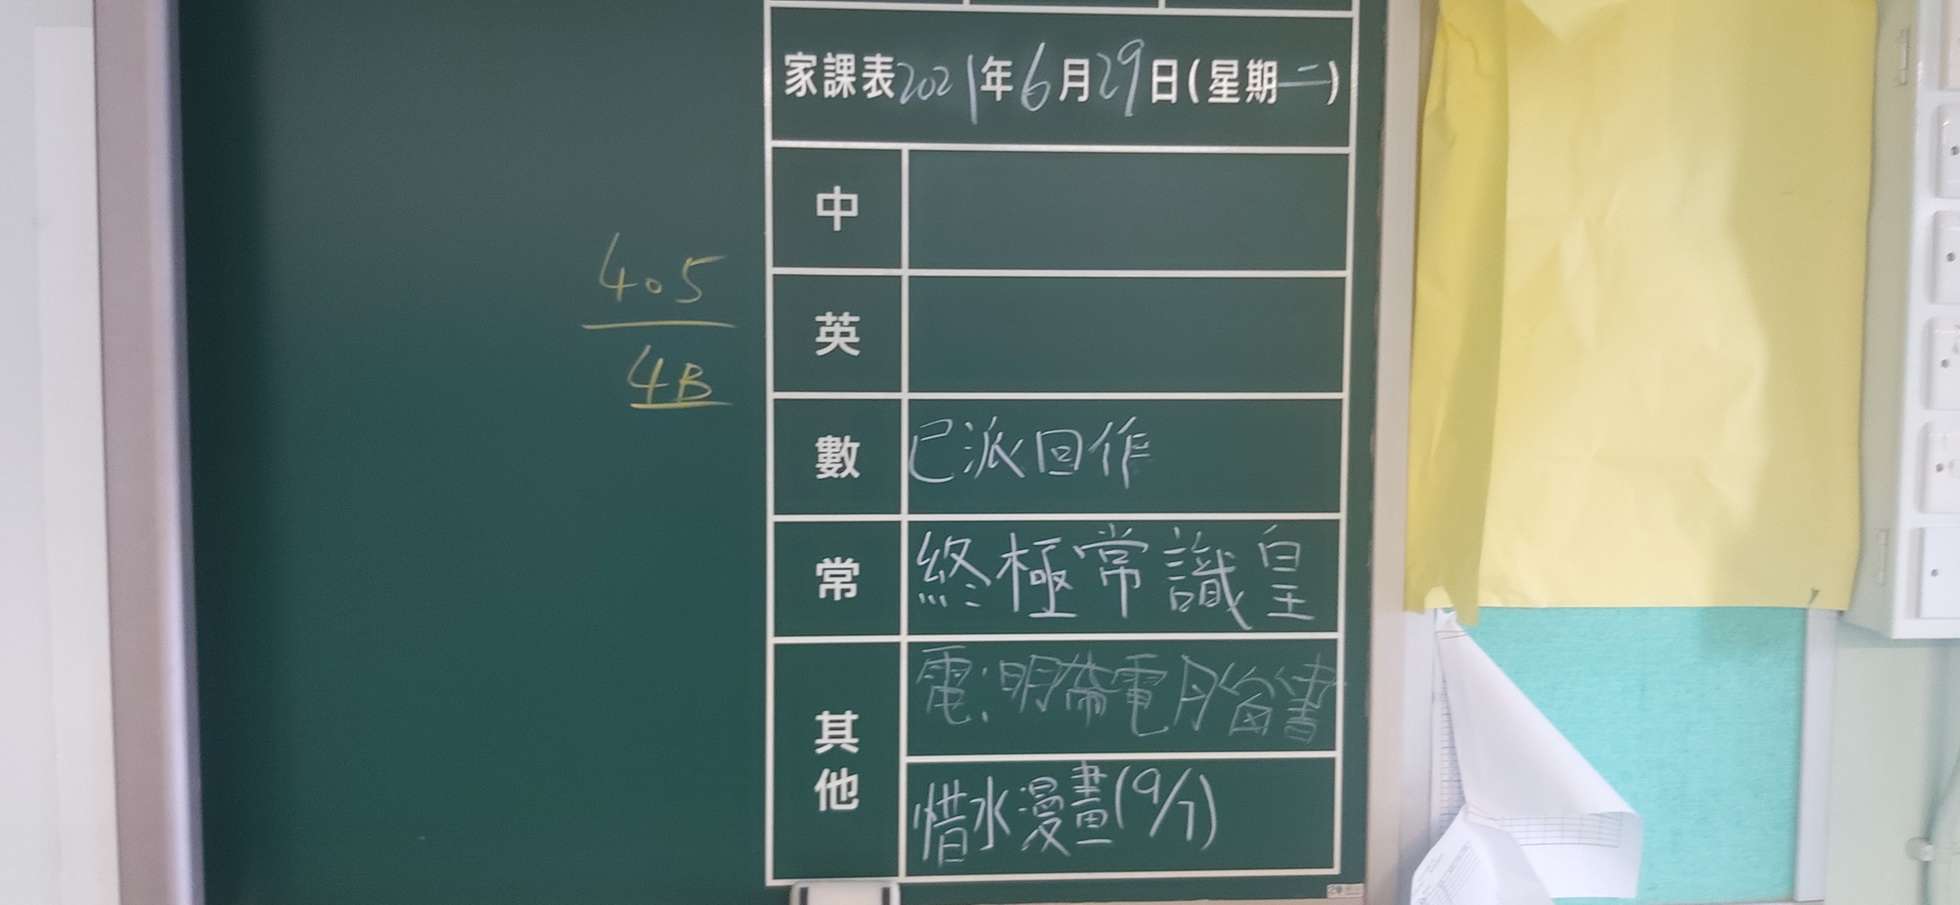 家課表2021年6月29日(星期二)
405
4B
中
英
數 已派回作
常 終極常識皇
其他 電:明帶電腦書
惜水漫畫(9/7)